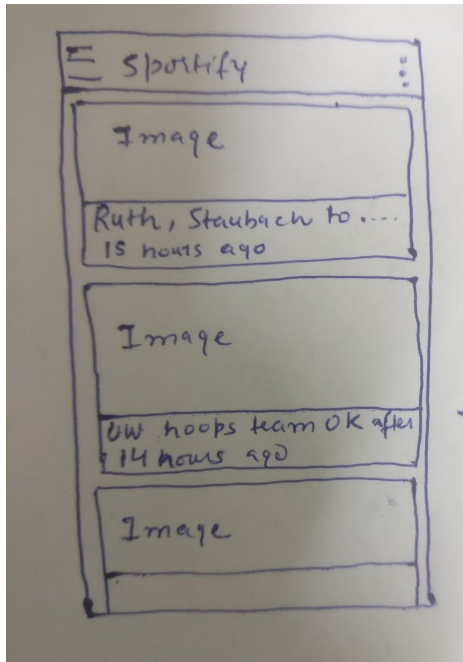 Sportify
Image
Ruth, Staubach to....
15 hours ago
Image
UW hoops team OK after
14 hours ago
Image